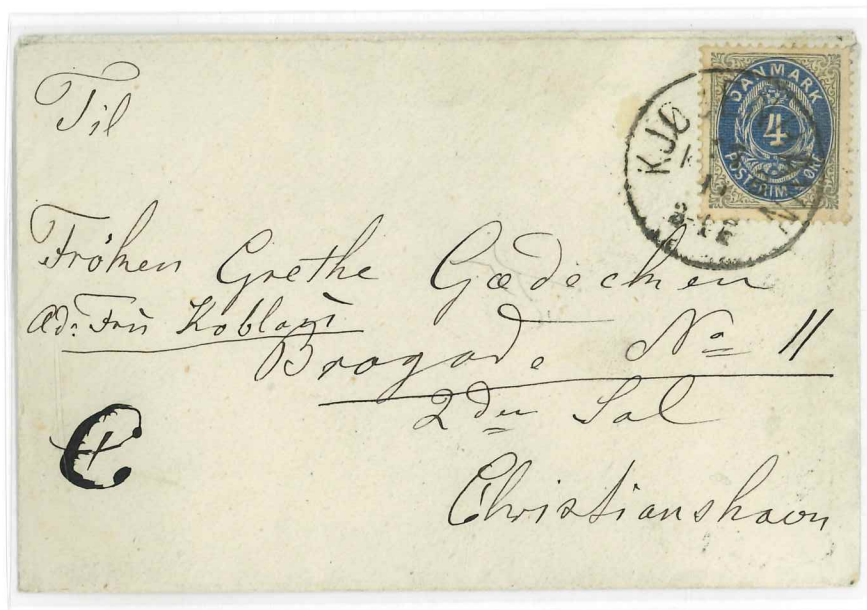 Til
DANMARK
4
POSTFRIM. 4 ØRE
KJØBENHAVN
Frøken Grethe Gædechen
Ad: Fru
Brogade No 11
2den Sal
Christianshavn
C